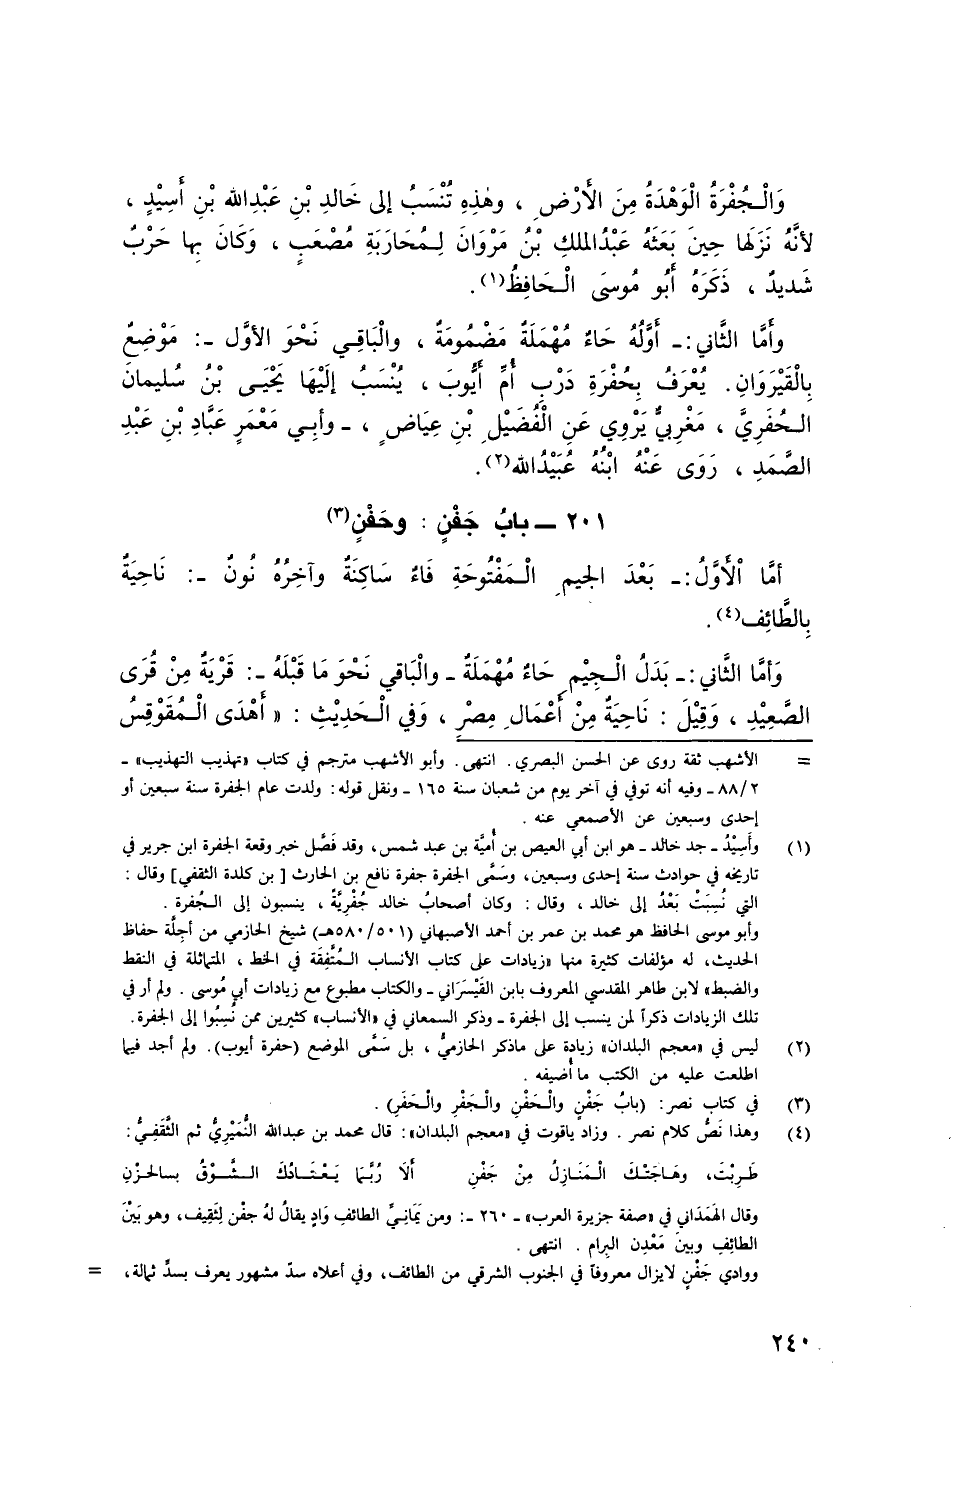 وَالْـجُفْرَةُ الْوَهْدَةُ مِنَ الأَرْضِ ، وهٰذِهِ تُنْسَبُ إلى خَالدِ بْنِ عَبْدِالله بْنِ أَسِيْدٍ ،
لأنَّهُ نَزَلَها حِينَ بَعَثَهُ عَبْدُالملكِ بْنُ مَرْوَانَ لِـمُحَارَبَةِ مُصْعَبٍ ، وَكَانَ بِها حَرْبٌ
شَديدٌ ، ذَكَرَهُ أَبُو مُوسَى الْـحَافِظُ(١).
وأَمَّا الثَّاني :ـ أَوَّلُهُ حَاءٌ مُهْمَلَةٌ مَضْمُومَةٌ ، والْبَاقِـي نَحْوَ الأوَّل ـ: مَوْضِعٌ
بِالْقَيْرَوَانِ. يُعْرَفُ بِحُفْرَةِ دَرْبِ أُمِّ أَيُّوبَ ، يُنْسَبُ إلَيْهَا يَحْيَـى بْنُ سُليمانَ
الـحُفَرِيَّ ، مَغْرِبيٌّ يَرْوِي عَنِ الْفُضَيْلِ بْنِ عِيَاضٍ ، ـ وأبِـي مَعْمَرٍ عَبَّادِ بْنِ عَبْدِ
الصَّمَدِ ، رَوَى عَنْهُ ابْنُهُ عُبَيْدُالله(٢).
٢٠١ ــ بابُ جَفْنٍ : وحَفْنٍ(٣)
أمَّا اْلأَوَّلُ :ـ بَعْدَ الجيمِ الْـمَفْتُوحَةِ فَاءٌ سَاكِنَةٌ وآخِرُهُ نُونٌ ـ: نَاحِيَةٌ
بِالطَّائِف(٤).
وَأمَّا الثَّاني :ـ بَدَلُ الْـجِيْمِ حَاءٌ مُهْمَلَةٌ ـ والْبَاقي نَحْوَ مَا قَبْلَهُ ـ: قَرْيَةٌ مِنْ قُرَى
الصَّعِيْدِ ، وَقِيْلَ : نَاحِيَةٌ مِنْ أَعْمَالِ مِصْرَ ، وَفي الْـحَدِيْثِ : « أَهْدَى الْـمُقَوْقِسُ
= الأشهب ثقة روى عن الحسن البصري. انتهى. وأبو الأشهب مترجم في كتاب «تهذيب التهذيب» ـ
٨٨/٢ ـ وفيه أنه توفي في آخر يوم من شعبان سنة ١٦٥ ـ ونقل قوله: ولدت عام الجفرة سنة سبعين أو
إحدى وسبعين عن الأصمعي عنه .
(١) وأَسِيْدُ ـ جد خالد ـ هو ابن أبي العيص بن أُميَّة بن عبد شمس، وقد فَصَّل خبر وقعة الجفرة ابن جرير في
تاريخه في حوادث سنة إحدى وسبعين، وسَمَّى الجفرة جفرة نافع بن الحارث [ بن كلدة الثقفي] وقال :
التي نُسِبَتْ بَعْدُ إلى خالد ، وقال : وكان أصحابُ خالد جُفْرِيَّةً ، ينسبون إلى الـجُفرة .
وأبو موسى الحافظ هو محمد بن عمر بن أحمد الأصبهاني (٥٨٠/٥٠١هـ) شيخ الحازمي من أجلَّة حفاظ
الحديث، له مؤلفات كثيرة منها «زيادات على كتاب الأنساب الـمُتَّفِقة في الخط ، المتماثلة في النقط
والضبط» لابن طاهر المقدسي المعروف بابن القَيْسَرَاني ـ والكتاب مطبوع مع زيادات أبي مُوسى . ولم أر في
تلك الزيادات ذكراً لمن ينسب إلى الجفرة ـ وذكر السمعاني في «الأنساب» كثيرين ممن نُسِبُوا إلى الجفرة.
(٢) ليس في «معجم البلدان» زيادة على ماذكر الحازميُّ ، بل سَمَّى الموضع (حفرة أيوب). ولم أجد فيما
اطلعت عليه من الكتب ما أُضيفه .
(٣) في كتاب نصر: (بابُ جَفْنٍ والْـحَفْنِ والْـجَفْرِ والْـحَفَرِ) .
(٤) وهذا نَصُّ كلام نصر . وزاد ياقوت في «معجم البلدان»: قال محمد بن عبدالله النُّمَيْرِيُّ ثم الثَّقَفِـيُّ:
طَرِبْتَ، وهَـاجَتْـكَ الْـمَنَازِلُ مِنْ جَفْنِ أَلَا رُبَّـمَا يَـعْـتَـادُكَ الـشَّـوْقُ بـالحُزْنِ
وقال الهَمْدَاني في «صفة جزيرة العرب» ـ ٢٦٠ ـ: ومن يَمَانِيِّ الطائفِ وَادٍ يقالُ لهُ جفْن لِثَقِيف، وهو بَيْنَ
الطائِفِ وبينَ مَعْدِن البرام . انتهى .
ووادي جَفْنٍ لايزال معروفاً في الجنوب الشرقي من الطائف، وفي أعلاه سدّ مشهور يعرف بسدِّ ثمالة، =
٢٤٠